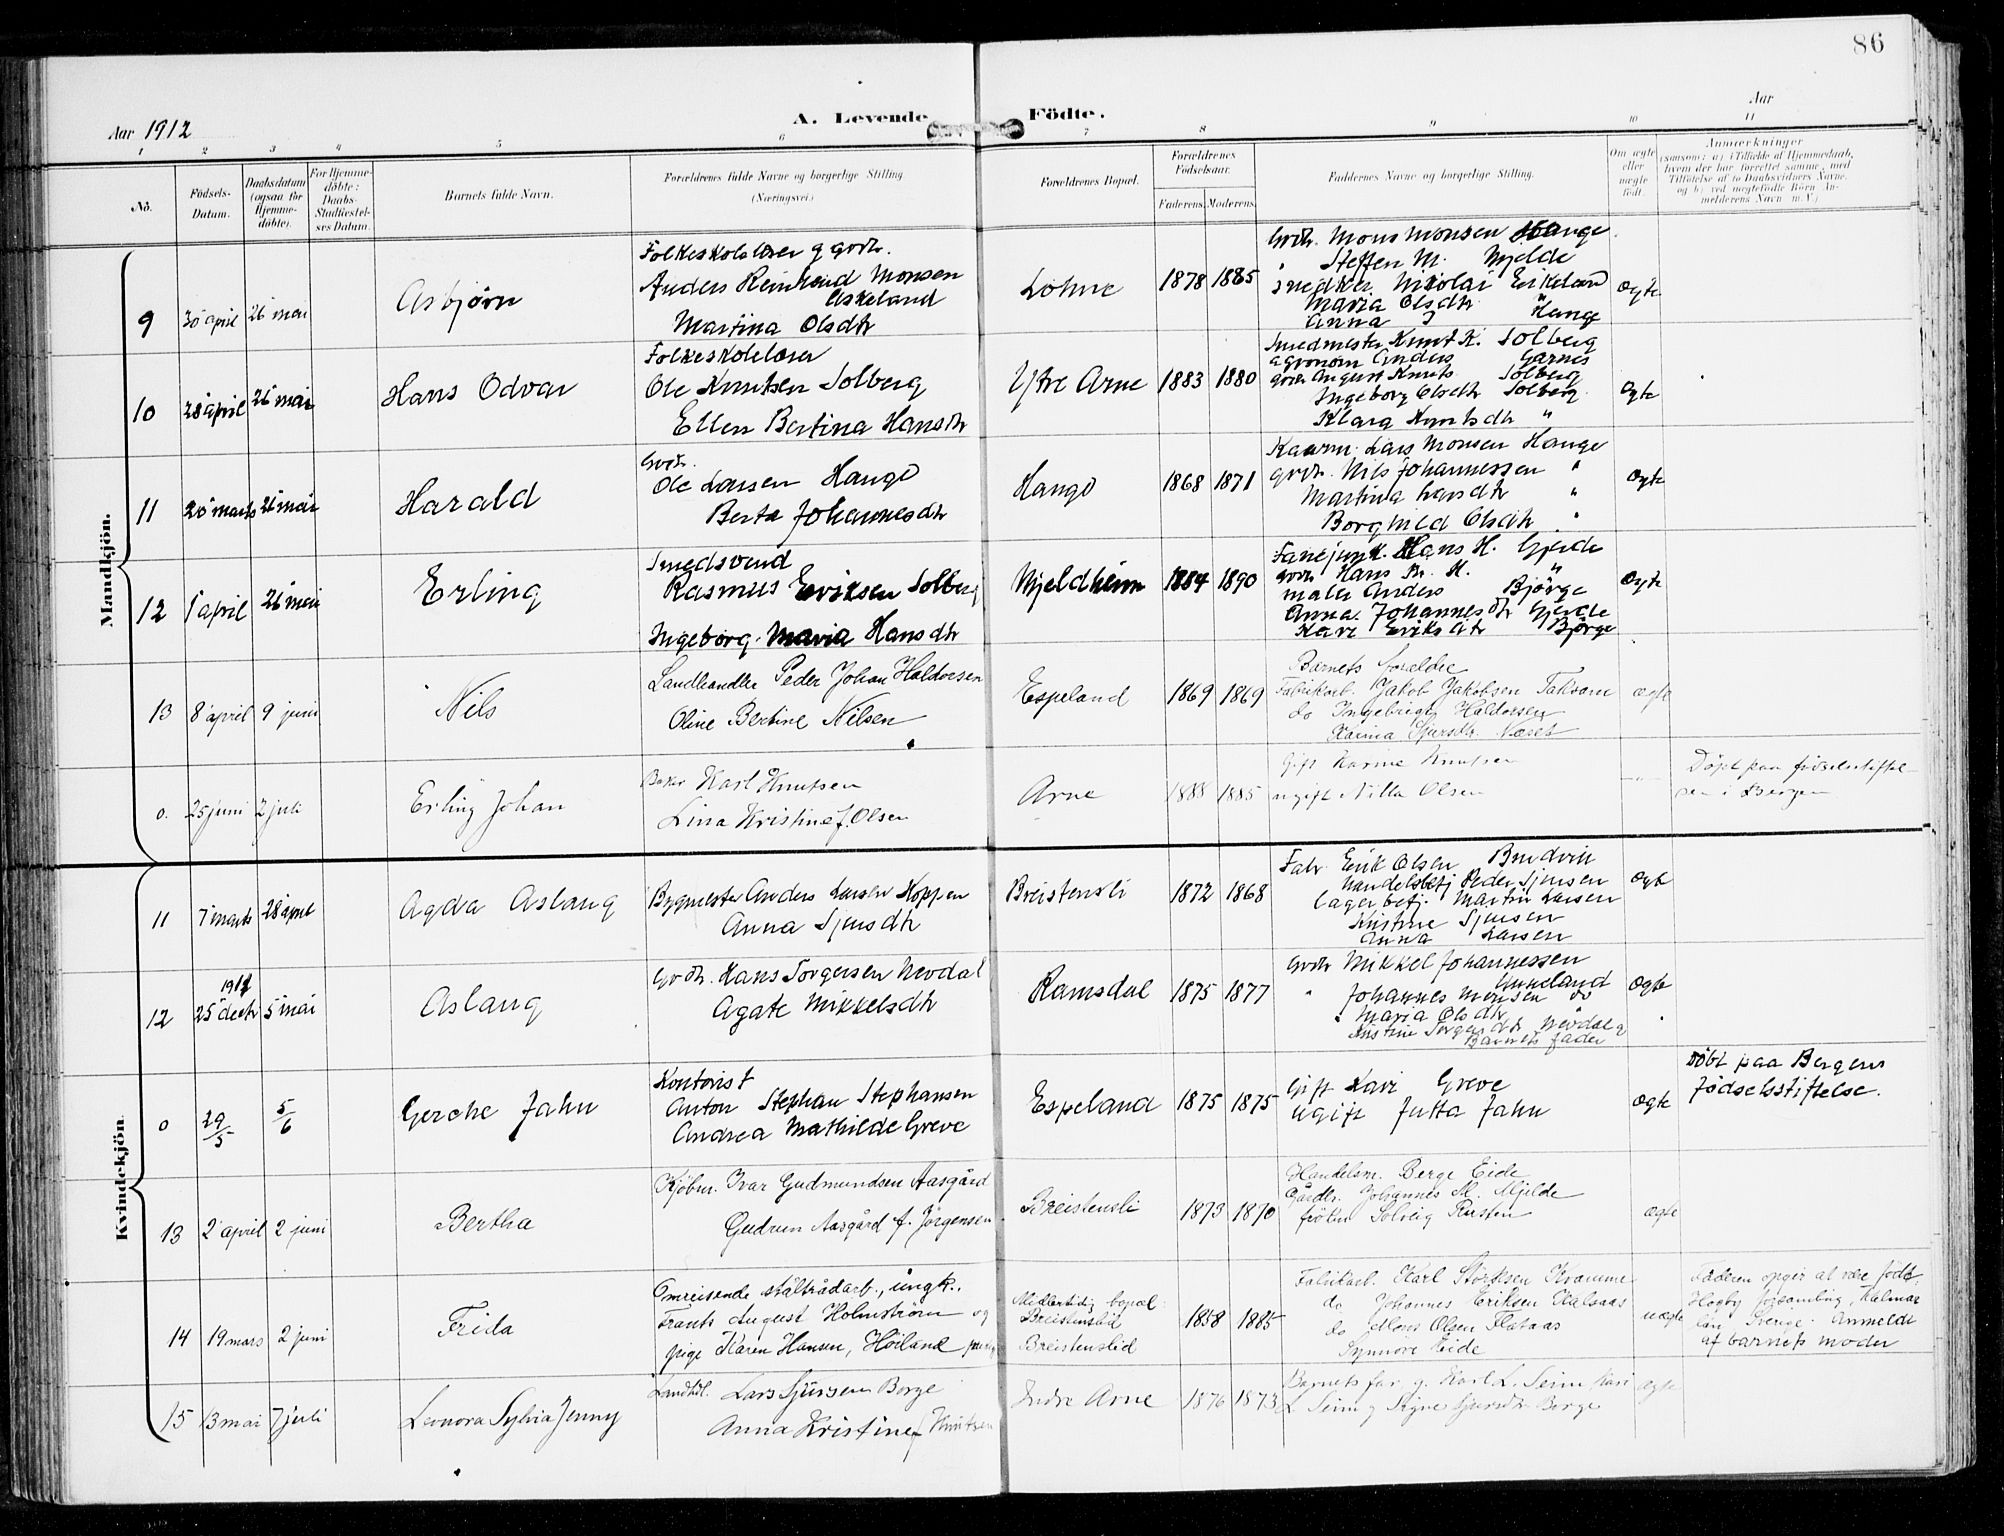 86
Aar 1912
A. Levende Födte.
Aar
1 2 3 4 5 6 7 8 9 10 11
No.
Födsels-Datum.
Daabsdatum (ogsaa for Hjemme-döbte).
For Hjemme-döbte: Daabs-Stadfæstel-ses Datum.
Barnets fulde Navn.
Forældrenes fulde Navne og borgerlige Stilling.
(Næringsvei.)
Forældrenes Bopæl.
Forældrenes Födselsaar.
Faderens. Moderens.
Faddernes Navne og borgerlige Stilling.
Om ægte eller uægte födt.
Anmærkninger
(saasom: a) i Tilfælde af Hjemmedaab,
hvem der har forrettet samme, med
Tilföielse af to Daabsvidners Navne,
og b) ved uægtefödte Börn An-
melderens Navn m. V.)
Mandkjön.
9 30 april 26 mai Asbjørn
Folkeskolelærer g gbr.
Anders Reinhard Monsen
Askeland
Martina Olsdtr
Lohne 1878 1885
Gbr. Mons Monsen Hauge
" Steffen M. Mjelde
Smedker. Nikolai Eikeland
Maria Olsdtr "
Anna J Hauge
ægte
10 28 april 26 mai Hans Odvar
Folkeskolelærer
Ole Knutsen Solberg
Ellen Bertina Hansdtr
Ytre Arne 1883 1880
Smedmester Knut K. Solberg
agronom Anders Garnes
gbr August Knuts. Solberg
Ingeborg Olsdtr Solberg
Klara Knutsdtr "
ægte
11 20 marts 26 mai Harald
Gbr.
Ole Larsen Hauge
Berta Johannesdtr
Hauge 1868 1871
Kaarm. Lars Monsen Hauge
gbr. Nils Johannessen "
Martina Larsdtr "
Borghild Olsdtr "
ægte
12 1 april 26 mai Erling
Smedsvend
Rasmus Eriksen Solberg
Ingeborg Maria Hansdtr
Mjeldheim 1884 1890
Fanejunk. Hans H. Gjerde
gbr Hans Br. H. "
maler Anders Bjørge
Anna Johannesdtr Gjerde
Kari Eriksdtr Bjørge
ægte
13 8 april 9 juni Nils
Landhandler Peder Johan Haldorsen
Oline Bertine Nilsen
Espeland 1869 1869
Barnets forældre
Fabrikarb. Jakob Jakobsen Takvam
do Ingebrigt Haldorsen
Karina Sjursdtr. Næset
ægte
0. 25 juni 2 juli Erling Johan
Baker Karl Knutsen
Lina Kristine f. Olsen
Arne 1888 1885
Gift Karine Knutsen
ugift Nilla Olsen
— " —
Døpt paa fødselsstiftel-
sen i Bergen
Kvindekjön.
11 7 marts 28 april Agda Aslaug
Bygmester Anders Larsen Koppen
Anna Sjursdtr
Breistensli 1872 1868
Fabr. Erik Olsen Brudvik
handelsbetj Peder Sjursen
lagerbetj. Martin Larsen
Kristine Sjursen
Anna Larsen
ægte
12 1911 25 decbr 5 mai Aslaug
Gbr. Hans Torgersen Nevdal
Agate Mikkelsdtr
Ramsdal 1875 1877
Gbr Mikkel Johannessen Unneland
" Johannes Monsen do
" Maria Olsdtr
Kristine Torgersdtr Nevdal g
Barnets fader
ægte
0 29/5 5/6 Gerche Jahn
Kontorist
Anton Stephan Stephansen
Andrea Mathilde Greve
Espeland 1875 1875
Gift Kari Greve
ugift Jutta Jahn
ægte
Døbt paa Bergens
fødselsstiftelse.
13 2 april 2 juni Bertha
Kjøbm. Ivar Gudmundsen Aasgård
Gudrun Aasgård f. Jørgensen
Breistensli 1873 1870
Handelsm. Berge Eide
Gårdbr. Johannes M. Mjelde
frøken Solveig Rusten
ægte
14 19 mars 2 juni Frida
Omreisende ståltrådarb., ungk.,
Frants August Holmstrøm og
pige Karen Hansen, Høiland
Midlertidig bopæl:
Breistenslid
Breistenslid
1858 1885
Fabrikarb. Karl Størksen Kvamme
do Johannes Eriksen Kalsaas
do Mons Olsen Flataas
Synnøve Eide
uægte
Faderen opgir at være født
Høgby forsamling, Kalmar
län Sverige. Anmeldt
af barnets moder
15 13 mai 7 juli Leonora Sylvia Jenny
Landhdl. Lars Sjurssen Borge
Anna Kristine f Knutsen
Indre Arne 1876 1873
Barnets far g. Karl L. Seim Kari
L Seim g Signe Sjursdtr Borge
ægte